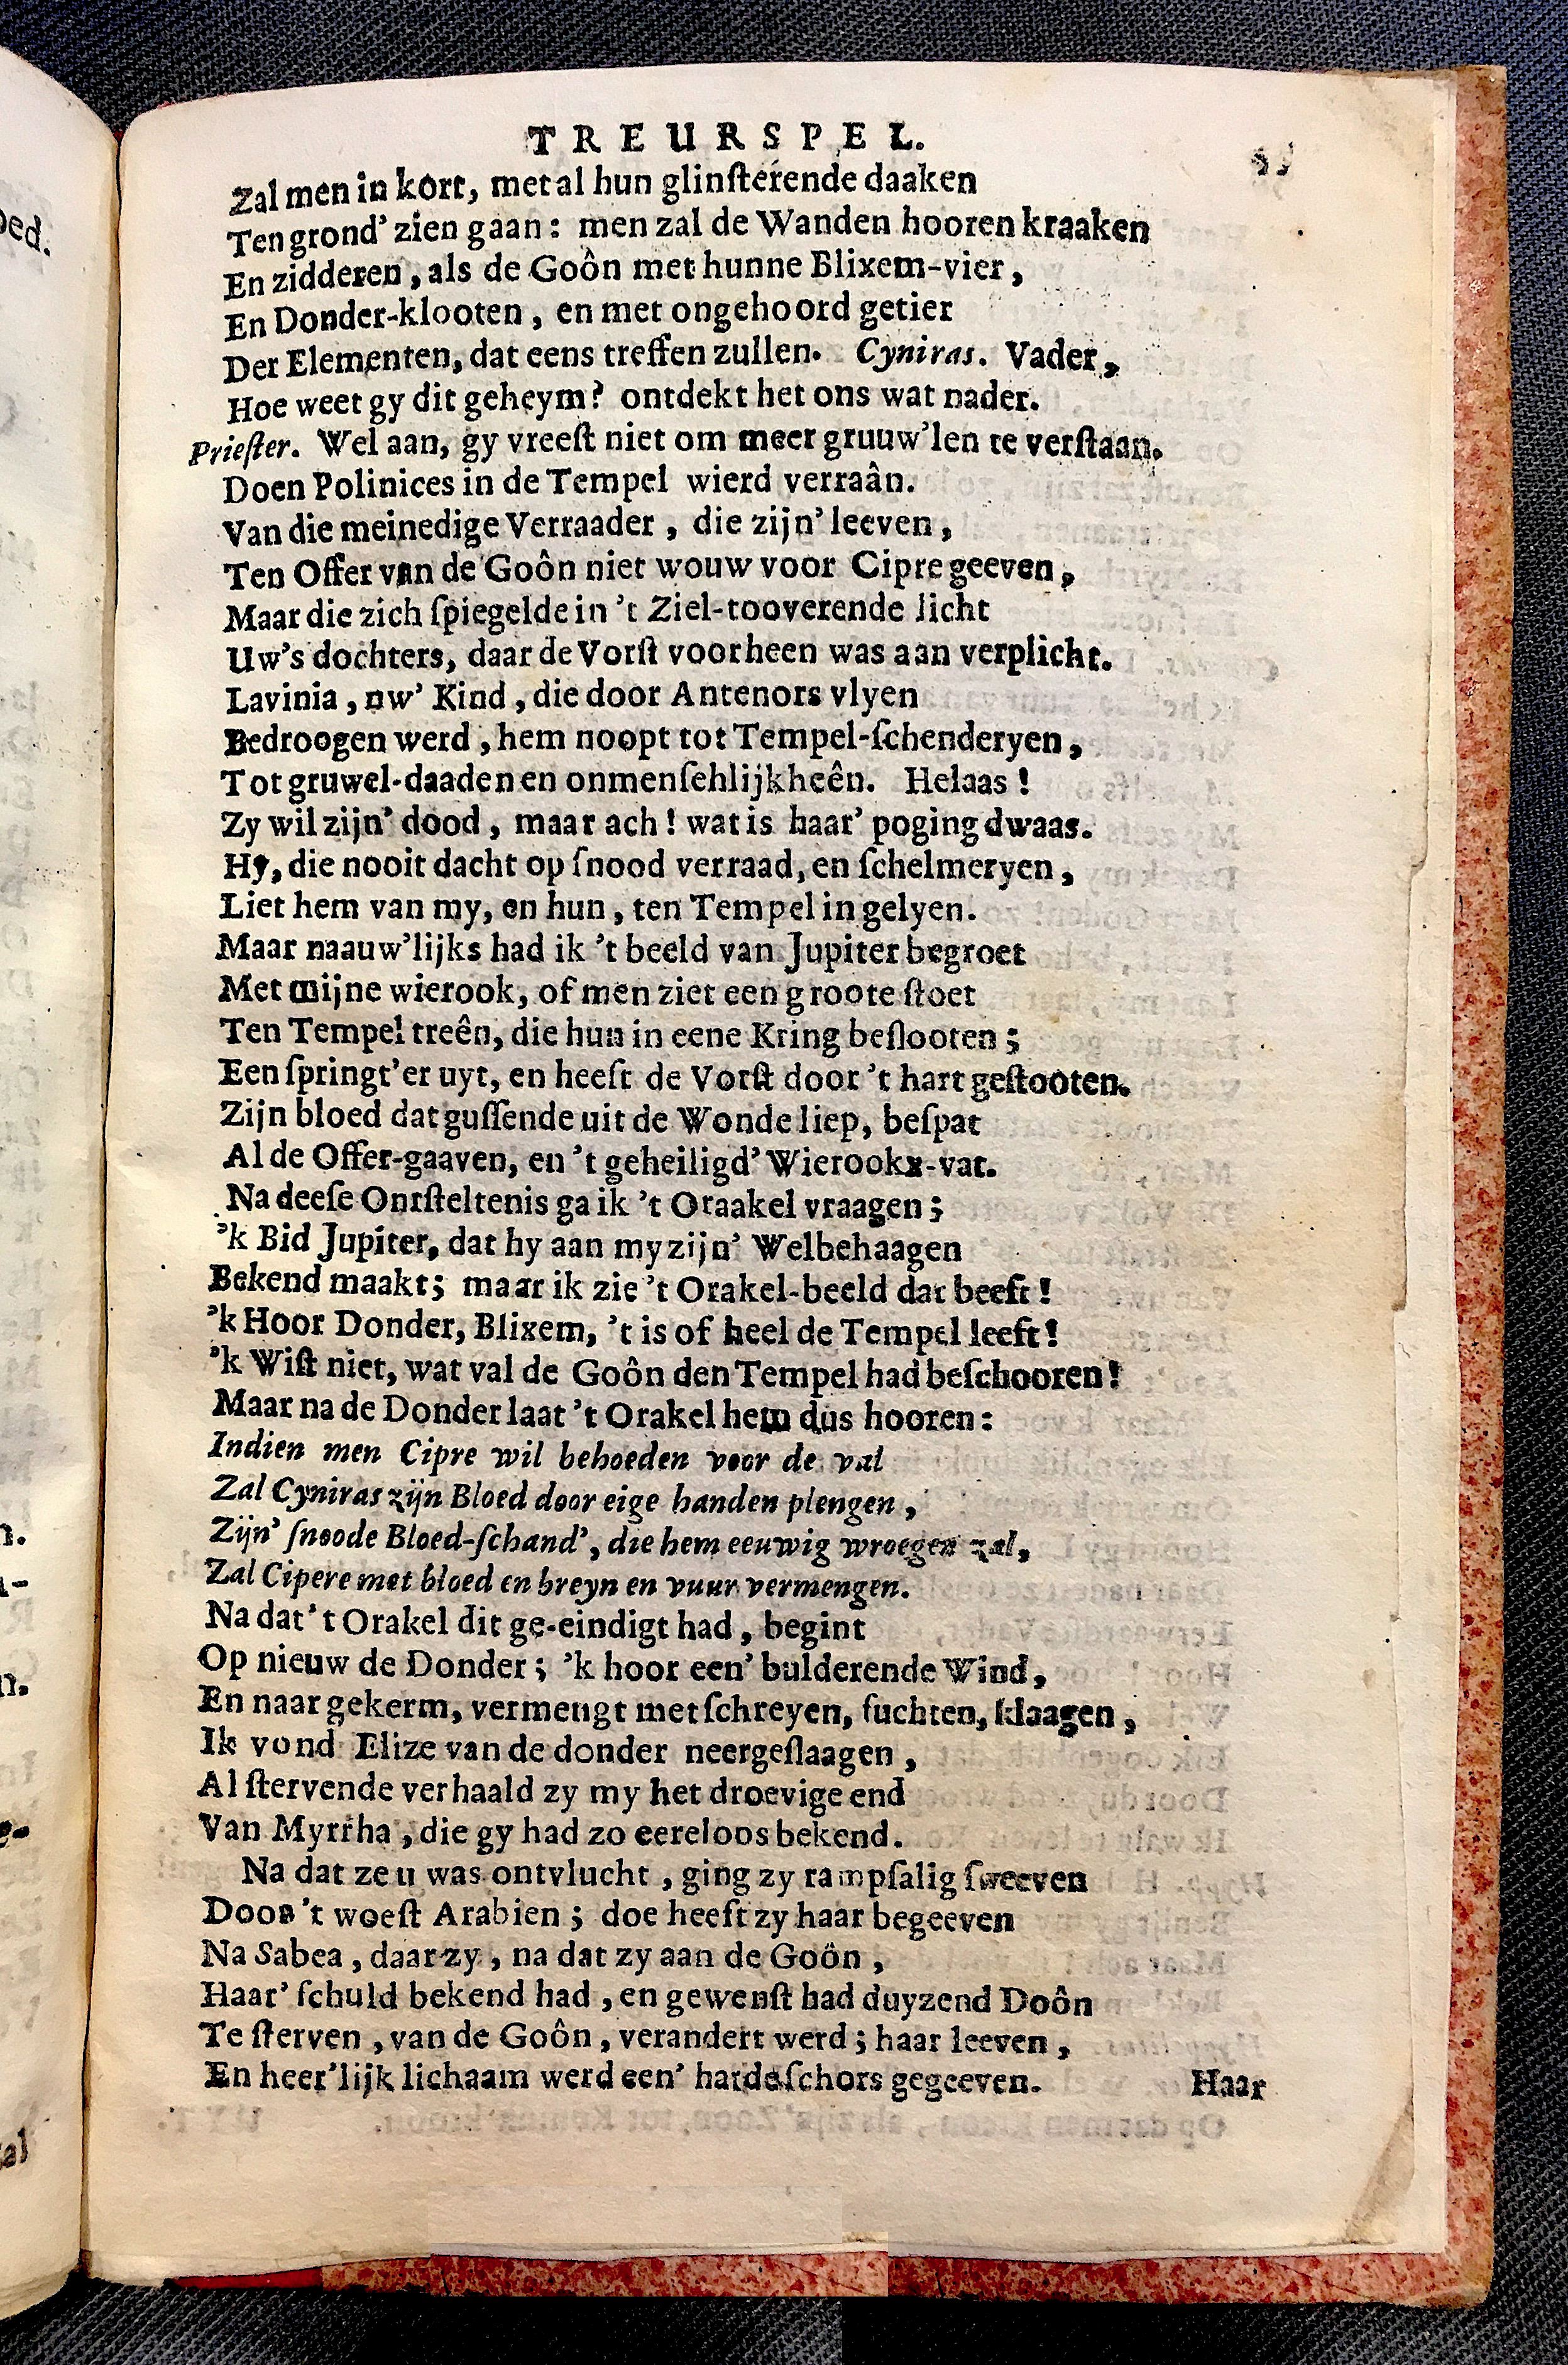 TREURSPEL.
Zal men in kort, met al hun glinſterende daaken
Ten grond' zien gaan: men zal de Wanden hooren kraaken
En zidderen, als de Goôn met hunne Blixem-vier,
En Donder-klooten, en met ongehoord getier
Der Elementen, dat eens treffen zullen. Cyniras. Vader,
Hoe weet gy dit geheym? ontdekt het ons wat nader.
Prieſter. Wel aan, gy vreeſt niet om meer gruuw'len te verſtaan.
Doen Polinices in de Tempel wierd verraân.
Van die meinedige Verraader, die zijn' leeven,
Ten Offer van de Goôn niet wouw voor Cipre geeven,
Maar die zich ſpiegelde in 't Ziel-tooverende licht
Uw's dochters, daar de Vorſt voorheen was aan verplicht.
Lavinia, uw' Kind, die door Antenors vlyen
Bedroogen werd, hem noopt tot Tempel-ſchenderyen,
Tot gruwel-daaden en onmenſehlijkheên. Helaas!
Zy wil zijn' dood, maar ach! wat is haar' poging dwaas.
Hy, die nooit dacht op ſnood verraad, en ſchelmeryen,
Liet hem van my, en hun, ten Tempel in gelyen.
Maar naauw'lijks had ik 't beeld van Jupiter begroet
Met mijne wierook, of men ziet een groote ſtoet
Ten Tempel treên, die hun in eene Kring beſlooten;
Een ſpringt'er uyt, en heeft de Vorſt door 't hart geſtooten.
Zijn bloed dat guſſende uit de Wonde liep, beſpat
Al de Offer-gaaven, en 't geheiligd' Wierookx-vat.
Na deeſe Ontſteltenis ga ik 't Oraakel vraagen;
'k Bid Jupiter, dat hy aan my zijn' Welbehaagen
Bekend maakt; maar ik zie 't Orakel-beeld dat beeft!
'k Hoor Donder, Blixem, 't is of heel de Tempel leeft!
'k Wiſt niet, wat val de Goôn den Tempel had beſchooren!
Maar na de Donder laat 't Orakel hem dus hooren:
Indien men Cipre wil behoeden voor de val
Zal Cyniras zijn Bloed door eige handen plengen,
Zijn' ſnoode Bloed-ſchand', die hem eeuwig wroegen zal,
Zal Cipere met bloed en breyn en vuur vermengen.
Na dat 't Orakel dit ge-eindigt had, begint
Op nieuw de Donder; 'k hoor een' bulderende Wind,
En naar gekerm, vermengt met ſchreyen, ſuchten, klaagen,
Ik vond Elize van de donder neergeſlaagen,
Al ſtervende verhaald zy my het droevige end
Van Myrrha, die gy had zo eereloos bekend.
Na dat ze u was ontvlucht, ging zy rampſalig ſweeven
Door 't woeſt Arabien; doe heeft zy haar begeeven
Na Sabea, daar zy, na dat zy aan de Goôn,
Haar' ſchuld bekend had, en gewenſt had duyzend Doôn
Te ſterven, van de Goôn, verandert werd; haar leeven,
En heer'lijk lichaam werd een' harde ſchors gegeeven.
Haar